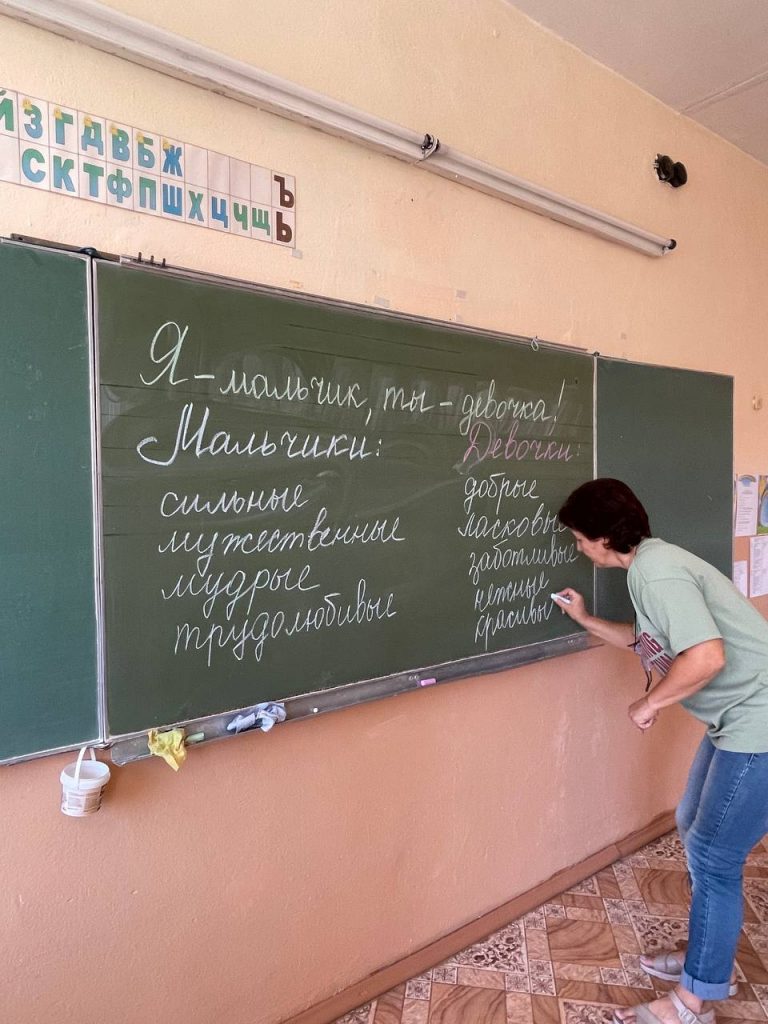 Й З Г Д В Б Ж Ъ
С К Т Ф П Ш Х Ц Ч Щ Ь
Я – мальчик, ты – девочка!
Мальчики: Девочки:
сильные добрые
мужественные ласковые
мудрые заботливые
трудолюбивые нежные
красивы